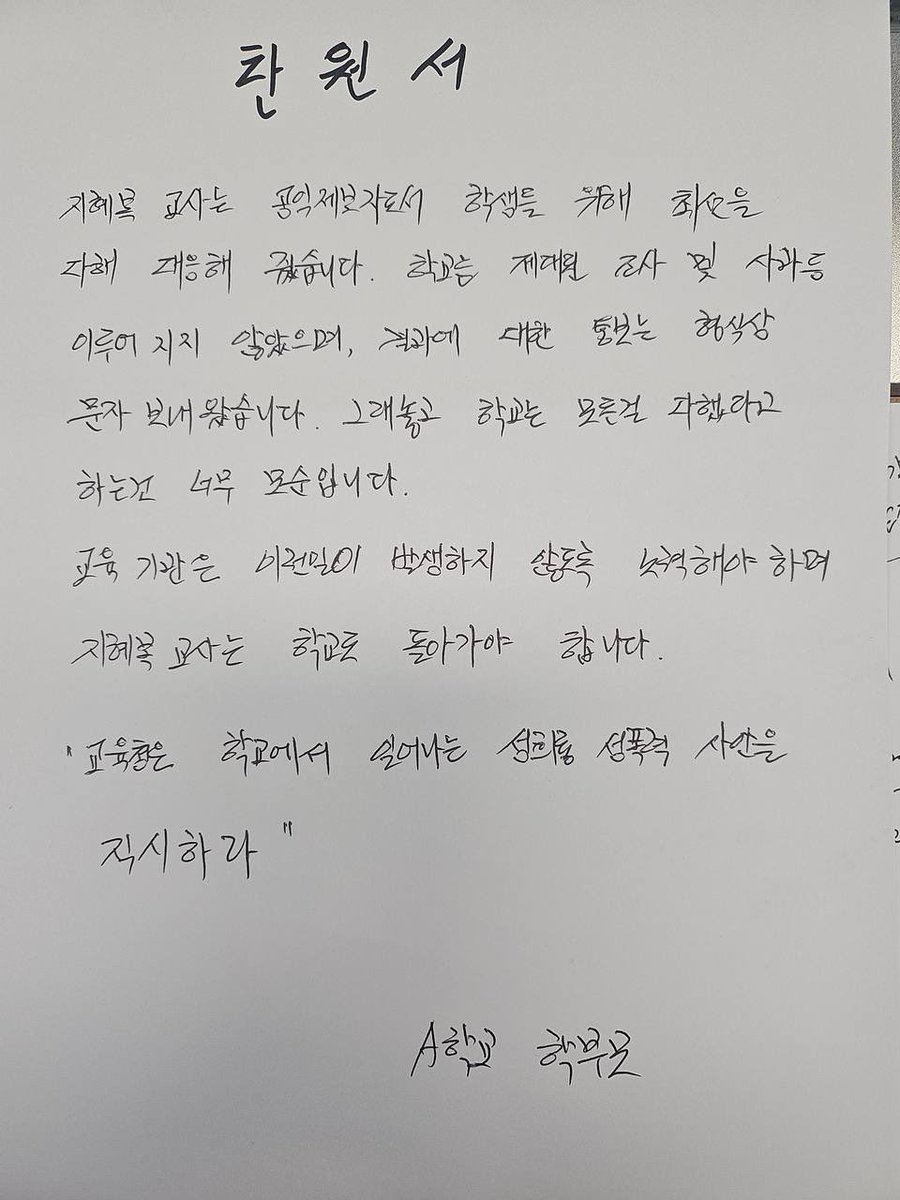 탄원서
지혜복 교사는 공익제보자로서 학생들을 위해 최선을
다해 대응해 줬습니다. 학교는 제대로된 조사 및 사과등
이루어 지지 않았으며, 결과에 대한 통보는 형식상
문자 보내왔습니다. 그래놓고 학교는 모든걸 다했다고
하는건 너무 모순입니다.
교육 기관은 이런일이 발생하지 않도록 노력해야 하며
지혜복 교사는 학교로 돌아가야 합니다.
"교육청은 학교에서 일어나는 성희롱 성폭력 사안을
직시하라"
A학교 학부모